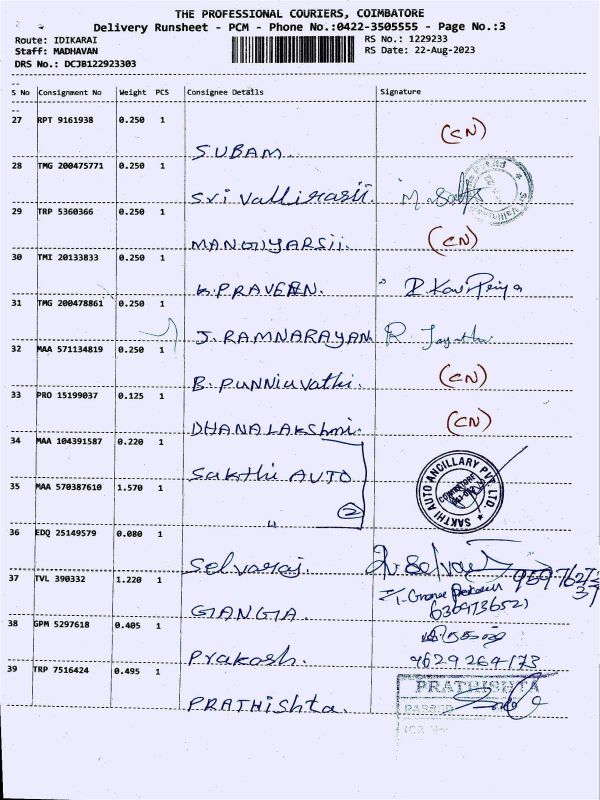 THE PROFESSIONAL COURIERS, COIMBATORE
Delivery Runsheet - PCM - Phone No.:0422-3505555 - Page No.:3
Route: IDIKARAI
RS No.: 1229233
Staff: MADHAVAN
RS Date: 22-Aug-2023
DRS No.: DCJB122923303
S No Consignment No Weight PCS Consignee Details Signature
27 RPT 9161938 0.250 1
SUBAM. (CN)
28 TMG 200475771 0.250 1
Sri Vallirasii.
29 TRP 5360366 0.250 1
MANGIYARSii. (CN)
30 TMI 20133833 0.250 1
K.PRAVEEN. P. KaviPriya
31 TMG 200478861 0.250 1
J. RAMNARAYAN R
32 MAA 571134819 0.250 1
B. PUNNiuvathi. (CN)
33 PRO 15199037 0.125 1
DHANALAKShmi. (CN)
34 MAA 104391587 0.220 1
Sakthi AUTO
SAKTHI AUTO ANCILLARY PVT. LTD.
35 MAA 570387610 1.570 1
〃 2
36 EDQ 25149579 0.080 1
Selvaraj.
37 TVL 390332 1.220 1
GANGA. 6369736521
38 GPM 5297618 0.405 1
Prakash. 9629264173
39 TRP 7516424 0.495 1
PRATHISHTA
PASSED
PRATHiShta.